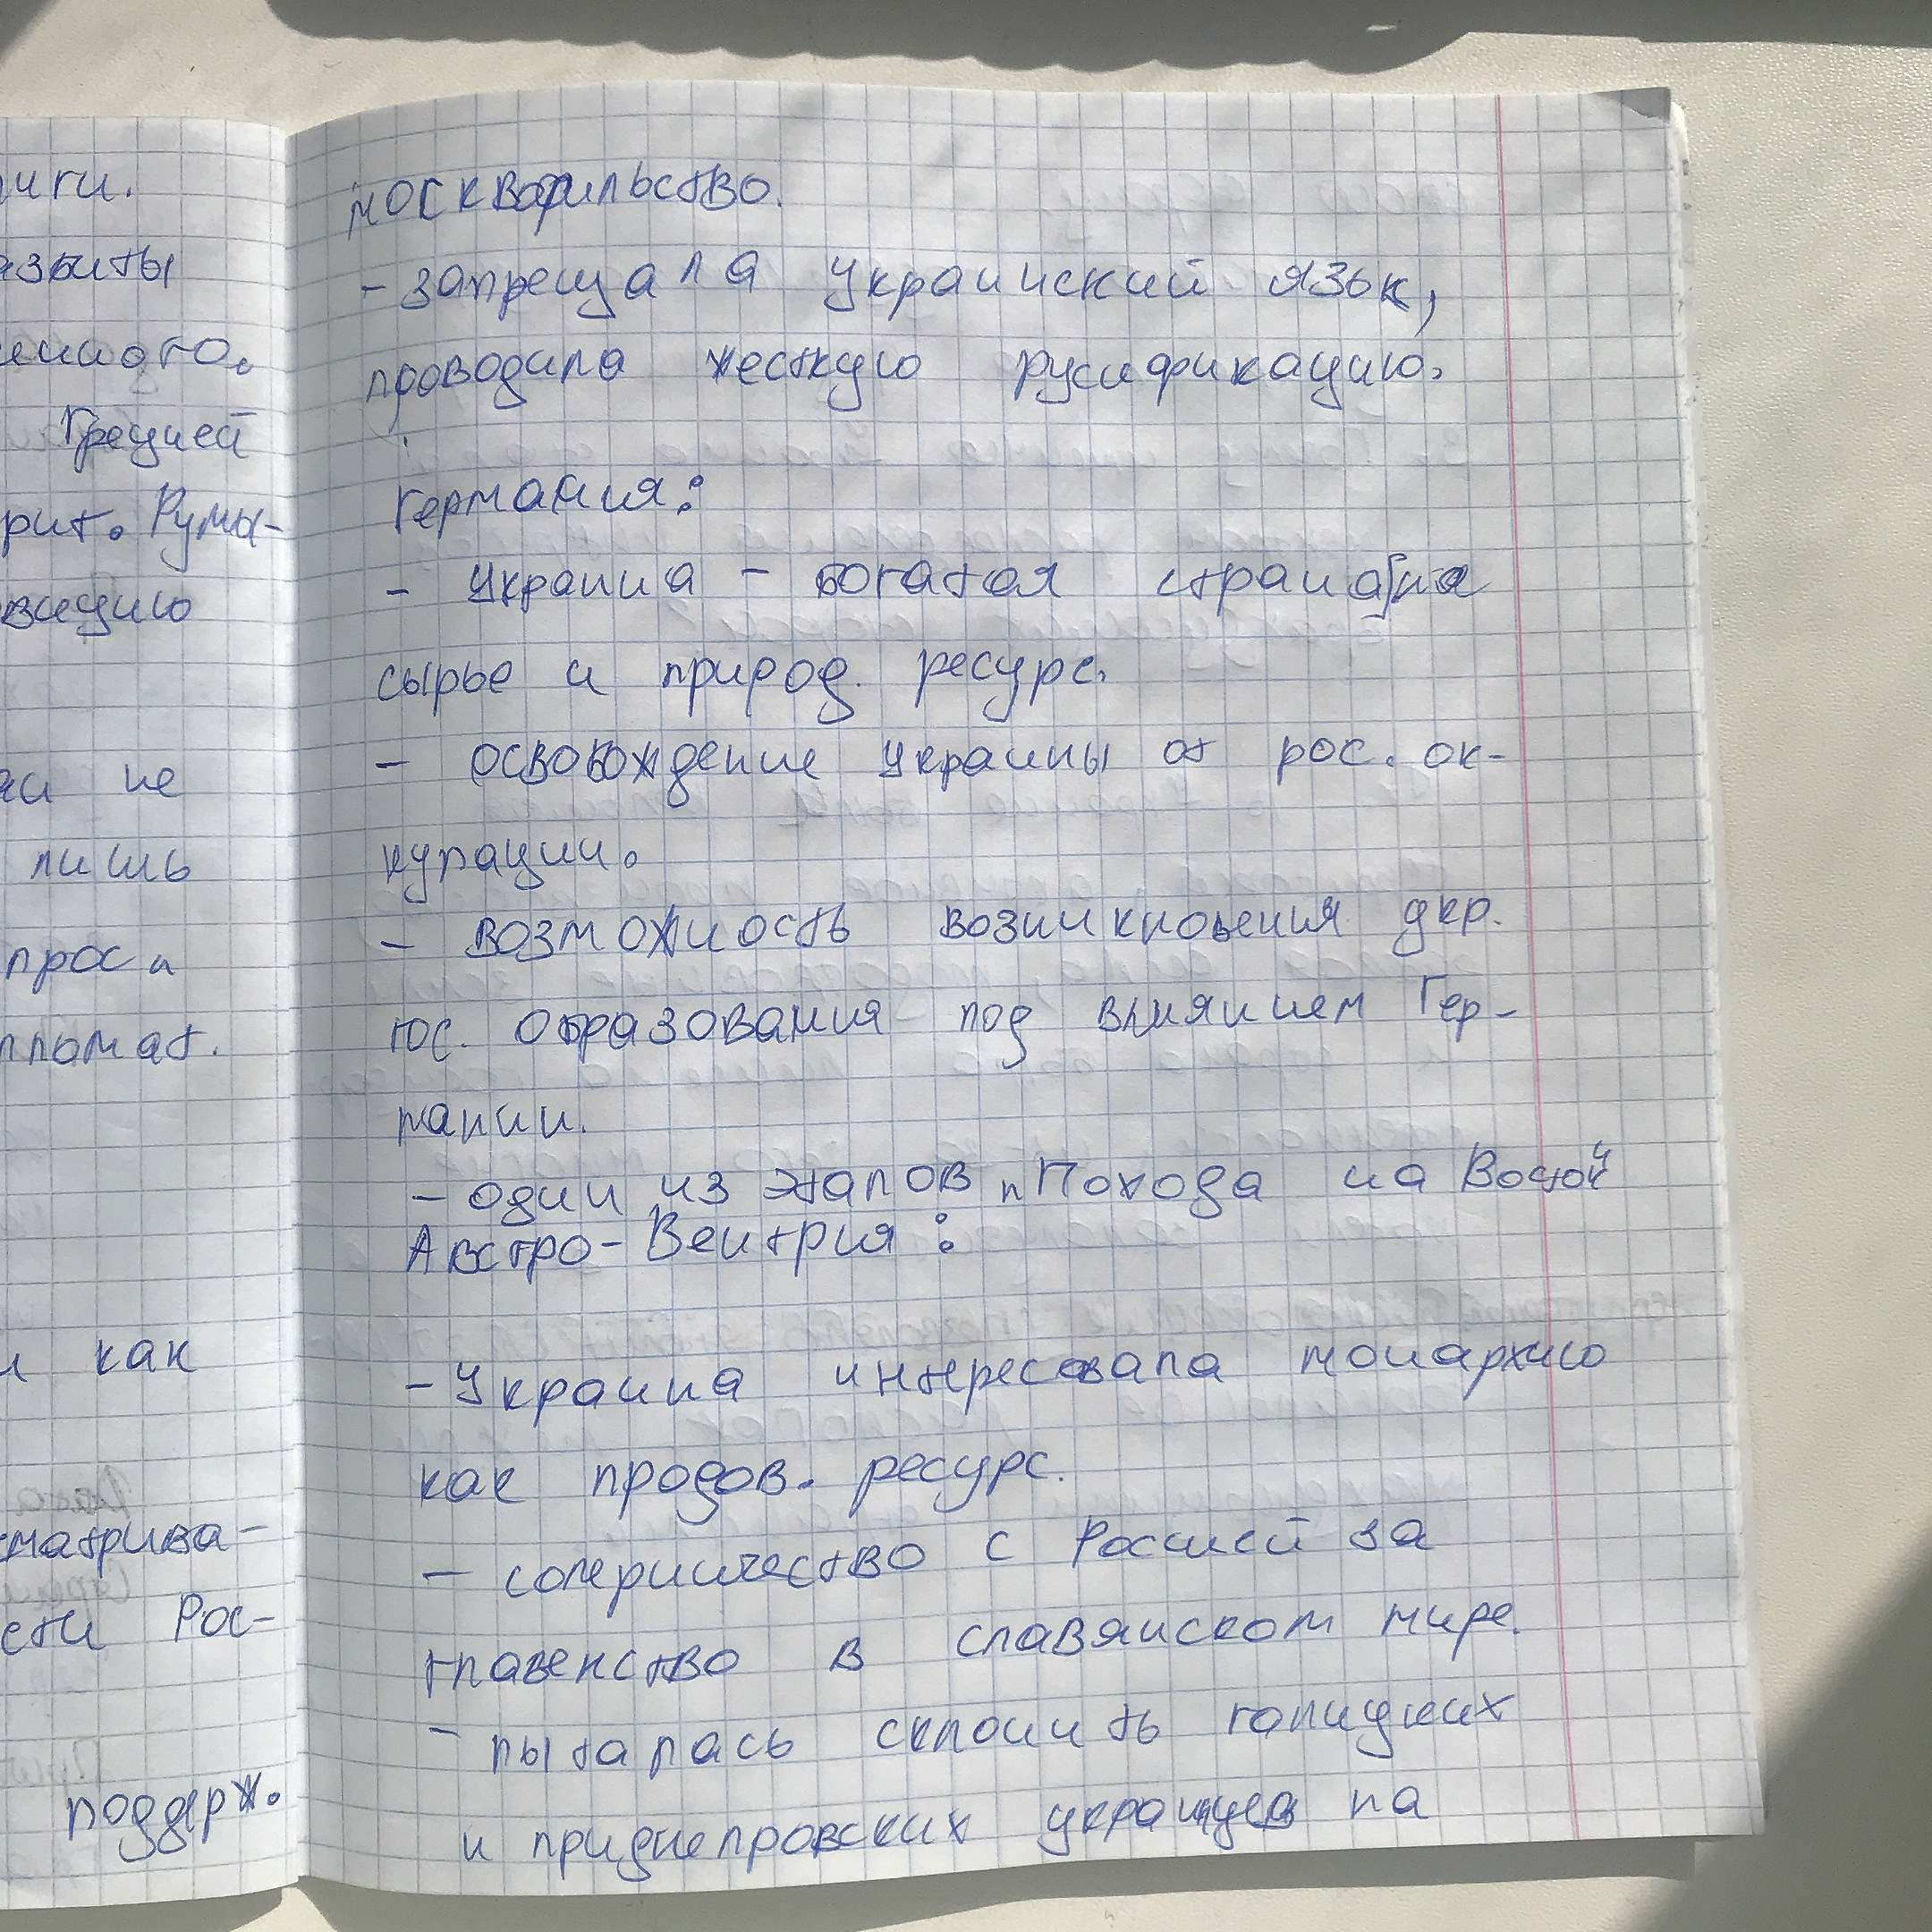 москвофильство.
- запрещала украинский язык,
проводила жесткую русификацию.
Германия:
- Украина - богатая страна на
сырье и природ. ресурс.
- освобождение Украины от рос. ок-
купации.
- возможность возникновения укр.
гос. образования под влиянием Гер-
мании.
- один из этапов „Похода на Восток"
Австро-Венгрия:
- Украина интересовала монархию
как продов. ресурс.
- соперничество с Россией за
главенство в славянском мире.
- пыталась склонить галицких
и приднепровских украинцев на
Грецией
Румы-
не
лишь
как
Рос-
поддерж.